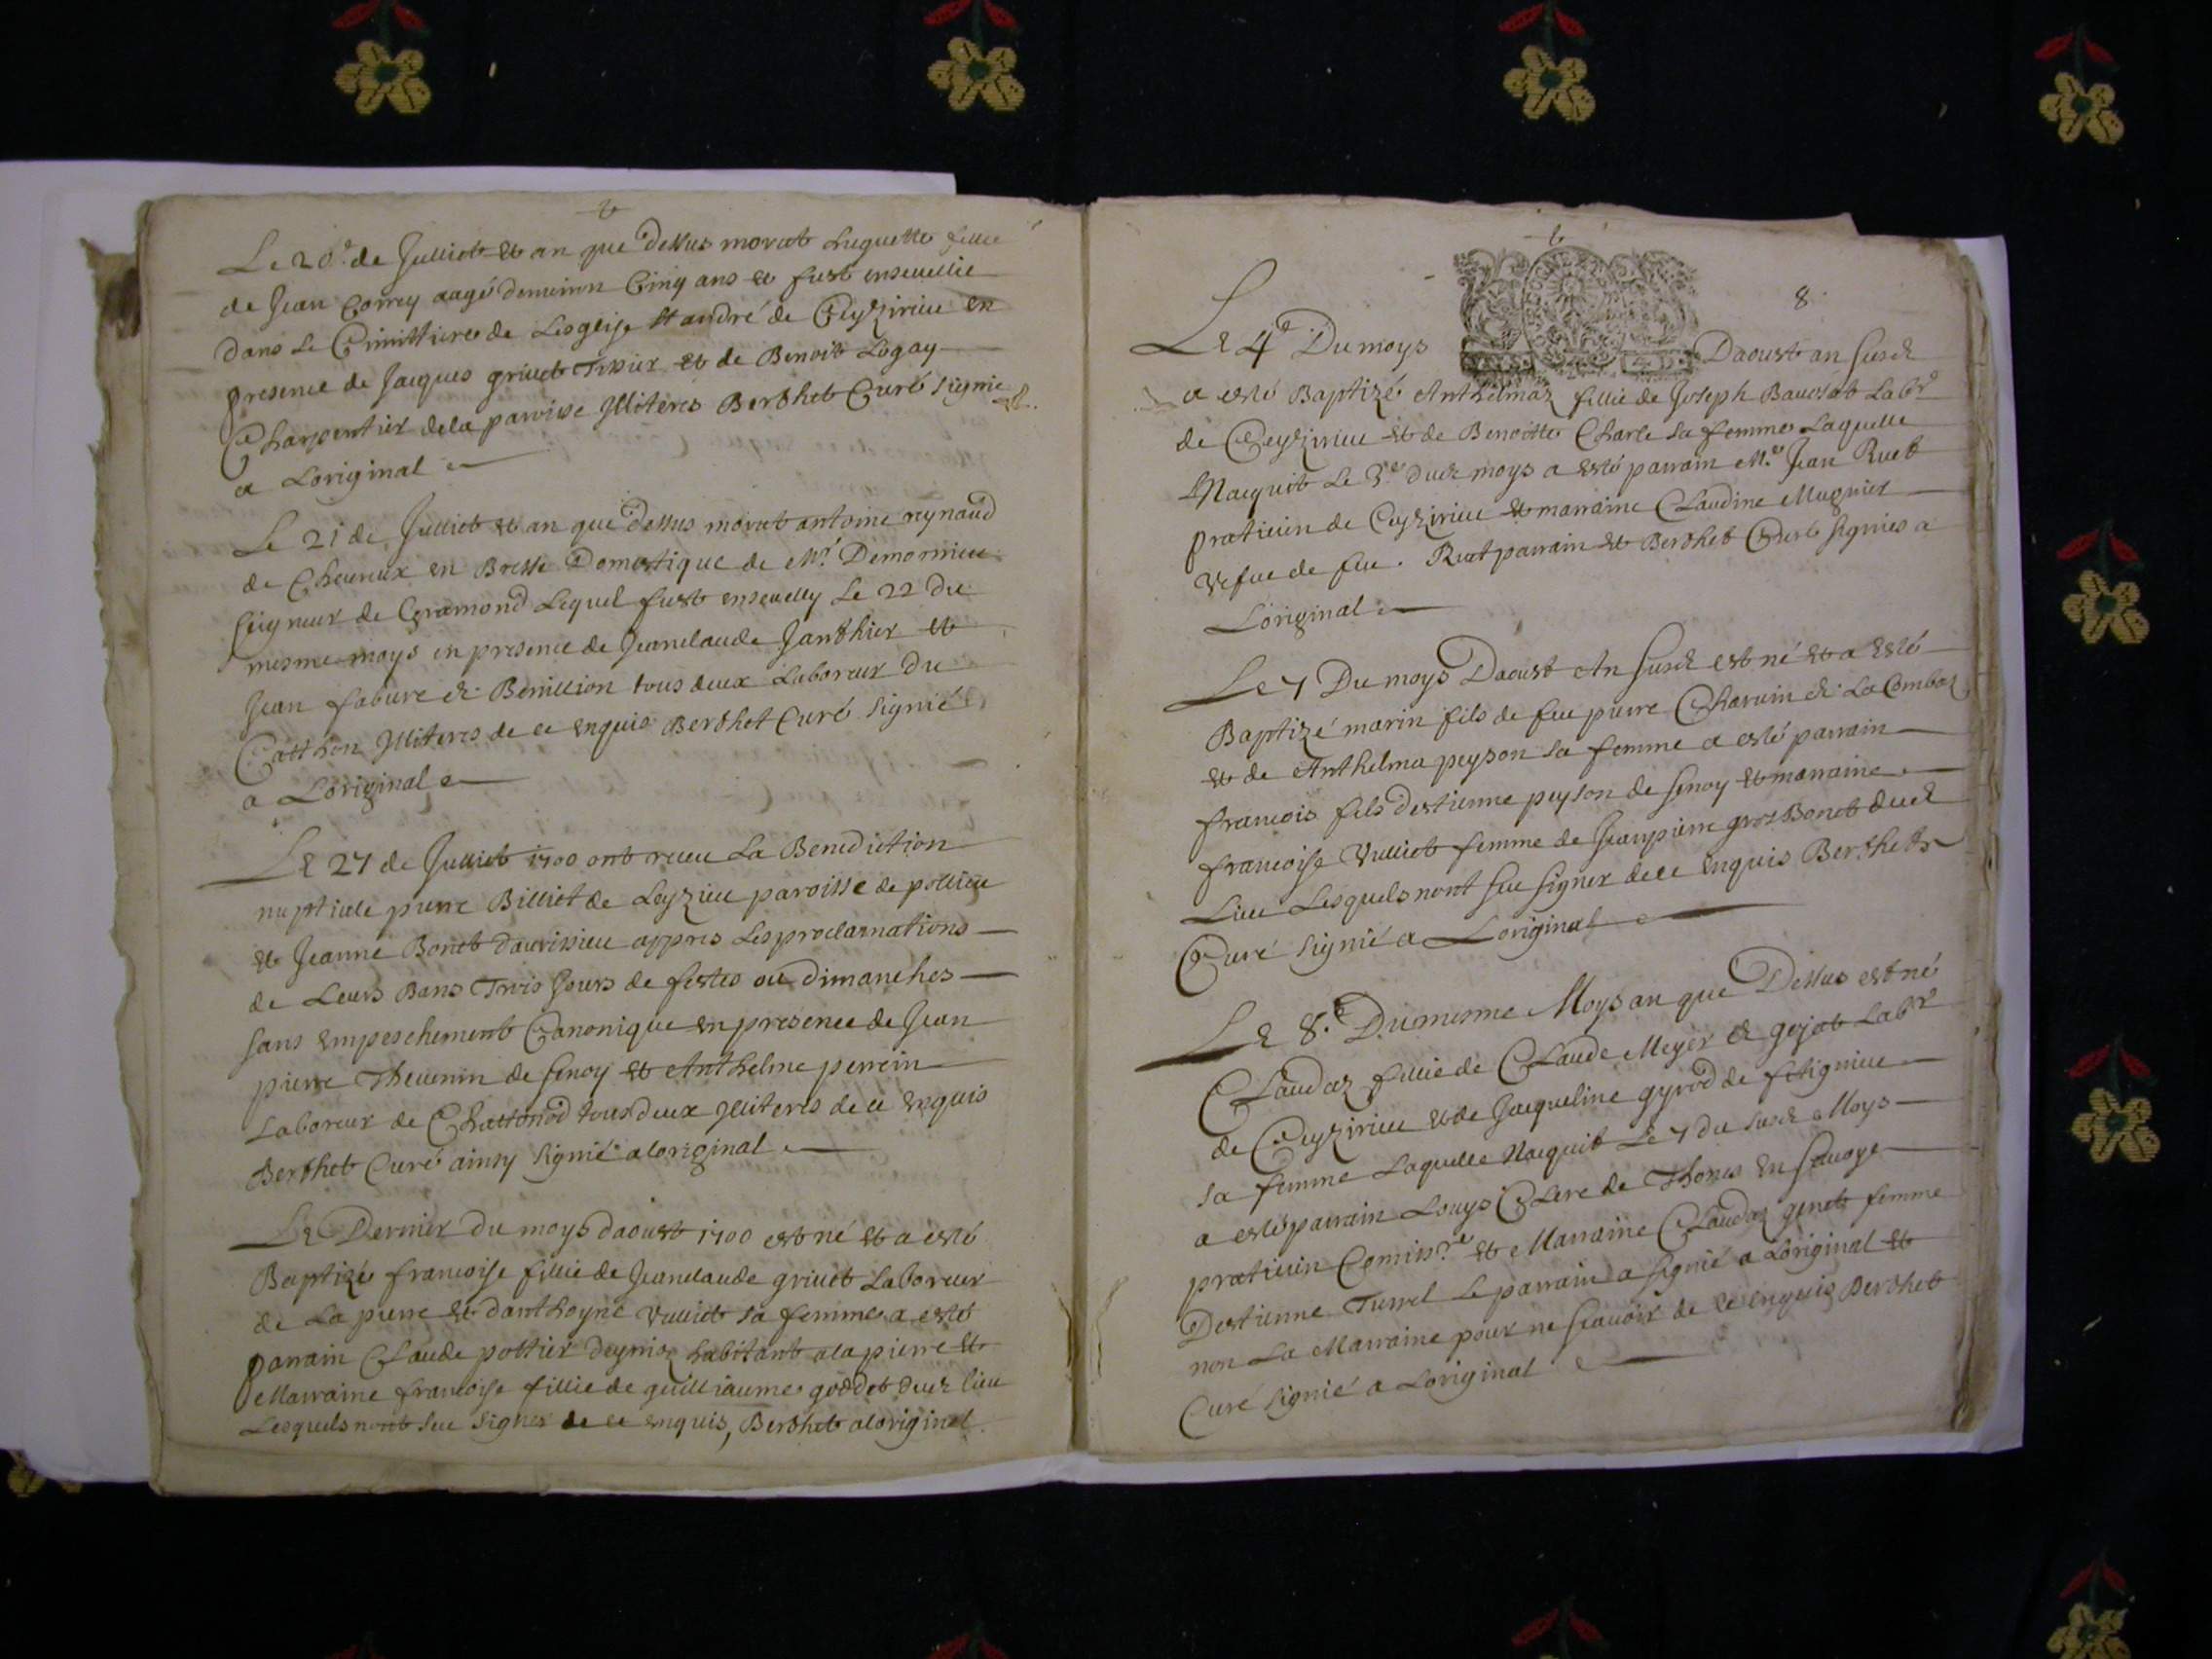 Le 20e de Julliet et an que dessus morut huguette fillie
de Jean Correy aagé denviron Cinq ans et fust ensevellie
dans le Cimittiere de Lesglise St andré de Ceyzirieu en
presence de Jacques grivet Tixier et de Benoit Logay
Charpentier dela paroisse Illiteres Berthet Curé signié
a Loriginal
Le 21 de Julliet et an que dessus morut antoine reynaud
de Cheureux en Bresse Domestique de Mr. Demornieu
seigneur de Gramond Lequel fust ensevelly Le 22 du
mesme moys en presence de Jeanclaude Janthier et
Jean fabure de Benillion tous deux Laboreur du
Catthon Illiteres de ce enquis Berthet Curé signié
a Loriginal
Le 27 de Julliet 1700 ont receu La Benediction
nuptiale pierre Billiet de Leyzieu paroisse de pollieu
et Jeanne Bonet davrissieu appres Les proclamations
de Leurs Bans Trois Jours de festes ou dimanches
sans empeschement Canonique en presence de Jean
pierre Thevenin de senoy et Anthelme perrein
Laboreur de Chattonod tous deux Illiteres de ce enquis
Berthet Curé ainsy signié a loriginal
Le Dernier du moys daoust 1700 est né et a esté
Baptizé francoise fillie de Jeanclaude grivet Laboreur
de La pierre et danthoyne vulliet sa femme a esté
parrain Claude pottier deyniaz habitant a la pierre et
Marraine francoise fillie de guilliaume goddet dud lieu
Lesquels nont sceu signer de ce enquis, Berthet a loriginal.
8
Le 4e Du moys Daoust an susd
a esté Baptizé Anthelmaz fillie de Joseph Bavosat Labr
de Ceyzirieu et de Benoitte Charle sa femme Laquelle
Nacquit Le 3e dud moys a esté parrain Me Jean Ruet
praticien de Ceyzirieu et marraine Claudine Mugnier
vefue de feu. Ruet parrain et Berthet Curé signies a
Loriginal
Le 7 Du moys Daoust An susd est né et a Esté
Baptizé marin fils de feu pierre Charuin de La Combaz
et de Anthelma peyson sa femme a esté parrain
francois fils destienne peyson de senoy et marraine
francoise Vulliet femme de Jeanpierre gros Bonet dud
Lieu Lesquels nont sceu signer de ce enquis Berthet
Curé signié a Loriginal
Le 8.e Du mesme Moys an que Dessus est né
Claudaz fillie de Claude Meyer de gojat Labr
de Ceyzirieu et de Jacqueline gyrod de fitignieu
sa femme Laquelle Nacquit Le 7 du susd Moys
a esté parrain Louys Clere de Thones en savoye
praticien Comissre et Marraine Claudaz genet femme
Destienne Turrel Le parrain a signié a Loriginal et
non La Marraine pour ne scavoir de ce enquis Berthet
Curé signié a Loriginal